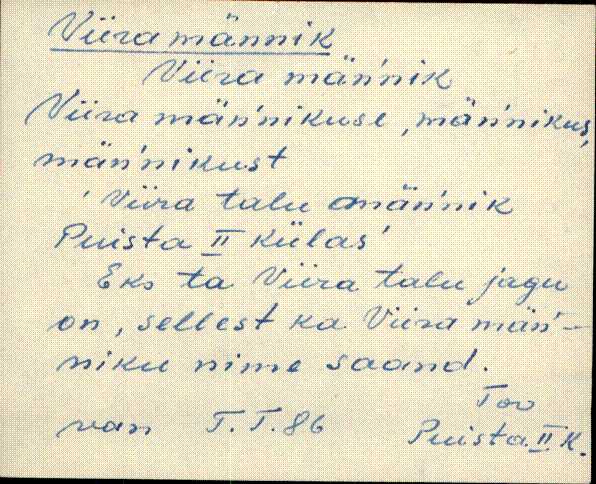 Viira männik
Viira mäńnik
Viira mäńnikuse, mäńnikus,
mäńnikust
'Viira talu mäńnik
Puista II külas'
Eks ta Viira talu jagu
on, sellest ka Viira mäń-
niku nime saand.
Tov
van T.T. 86 Puista II k.